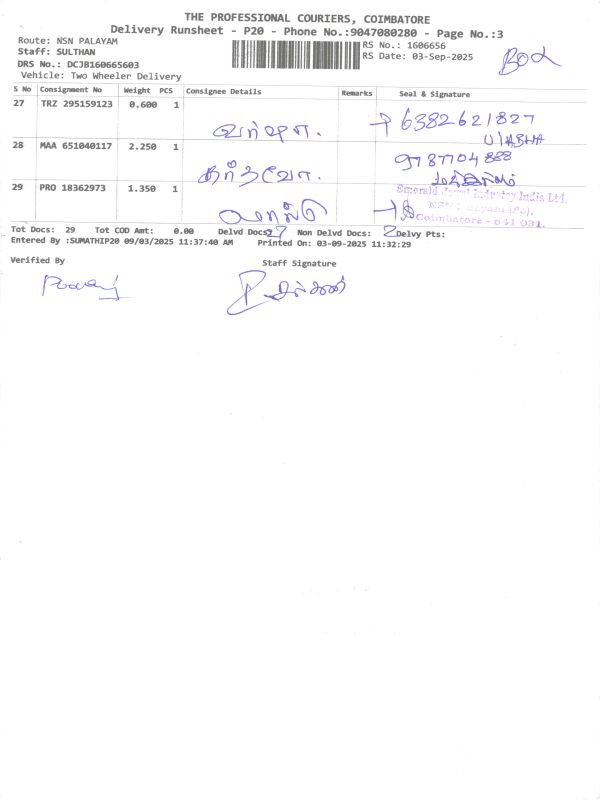 THE PROFESSIONAL COURIERS, COIMBATORE
Delivery Runsheet - P20 - Phone No.:9047080280 - Page No.:3
Route: NSN PALAYAM
Staff: SULTHAN
DRS No.: DCJB160665603
Vehicle: Two Wheeler Delivery
RS No.: 1606656
RS Date: 03-Sep-2025
S No Consignment No Weight PCS Consignee Details Remarks Seal & Signature
27 TRZ 295159123 0.600 1 வர்ஷா. 6382621827
28 MAA 651040117 2.250 1 9787704888
29 PRO 18362973 1.350 1
Emerald Jewel Industry India Ltd.
Coimbatore - 641 031.
Tot Docs: 29 Tot COD Amt: 0.00 Delvd Docs: 27 Non Delvd Docs: 2 Delvy Pts:
Entered By :SUMATHIP20 09/03/2025 11:37:40 AM Printed On: 03-09-2025 11:32:29
Verified By Staff Signature